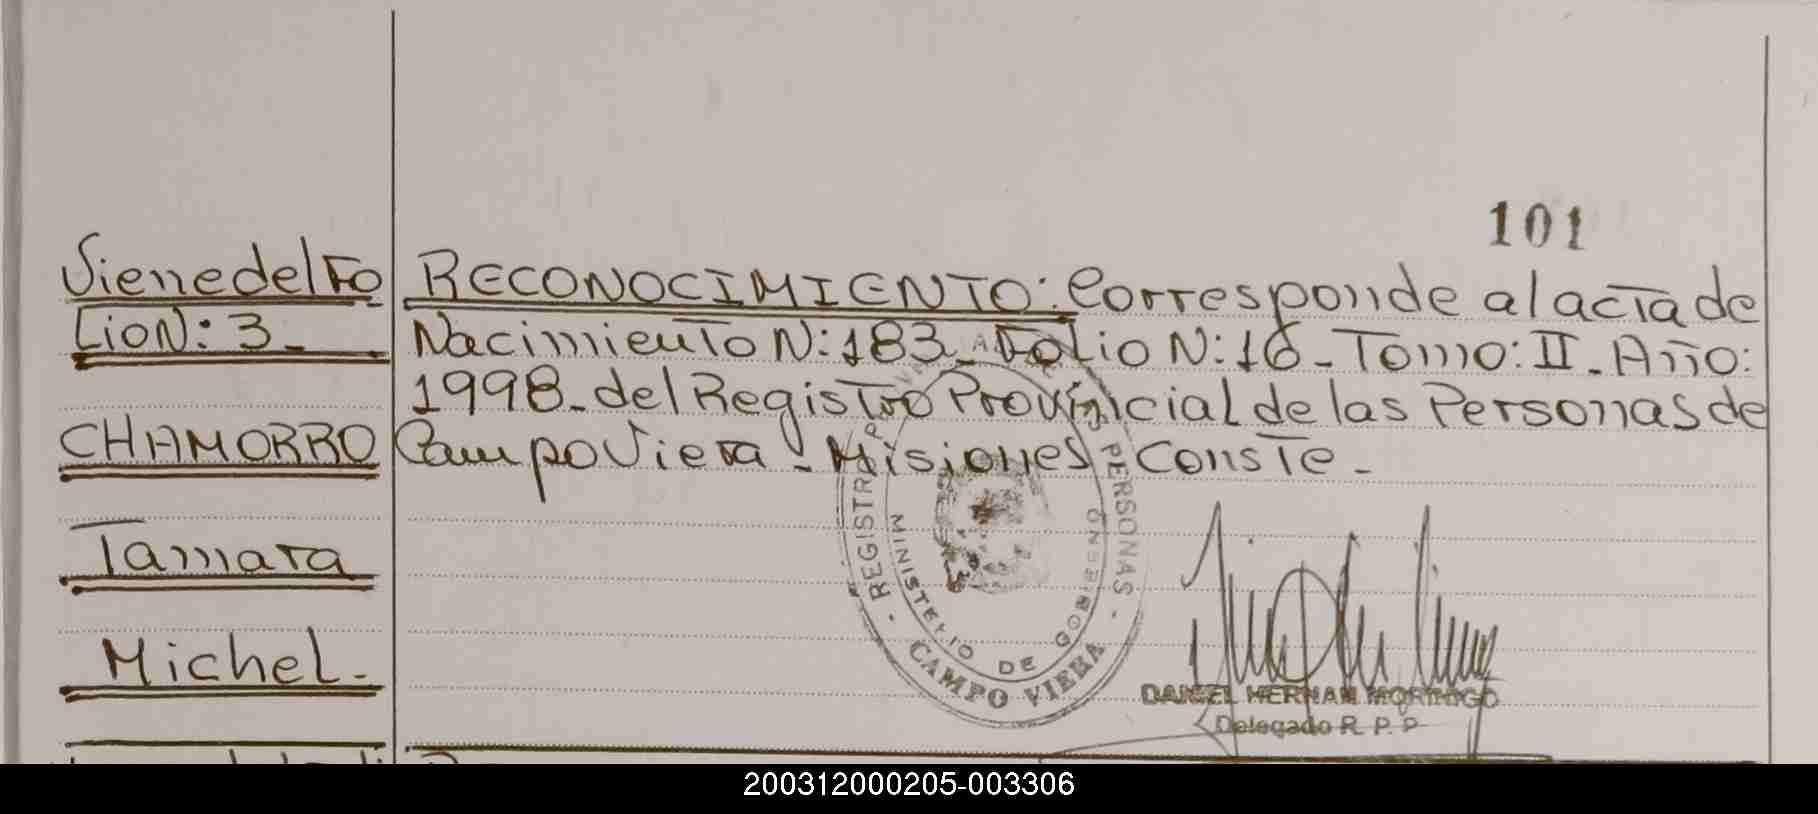 101
Viene del Fo
Lio N: 3_
CHAMORRO
Tamara
Michel.
RECONOCIMIENTO: Corresponde al acta de
Nacimiento N: 183_ Folio N: 16_ Tomo: II_ Año:
1998_ del Registro Provincial de las Personas de
Campo Viera - Misiones. Conste_
REGISTRO PROVINCIAL DE LAS PERSONAS
MINISTERIO DE GOBIERNO
CAMPO VIERA
DANIEL HERNAN MORINIGO
Delegado R. P. P
200312000205-003306